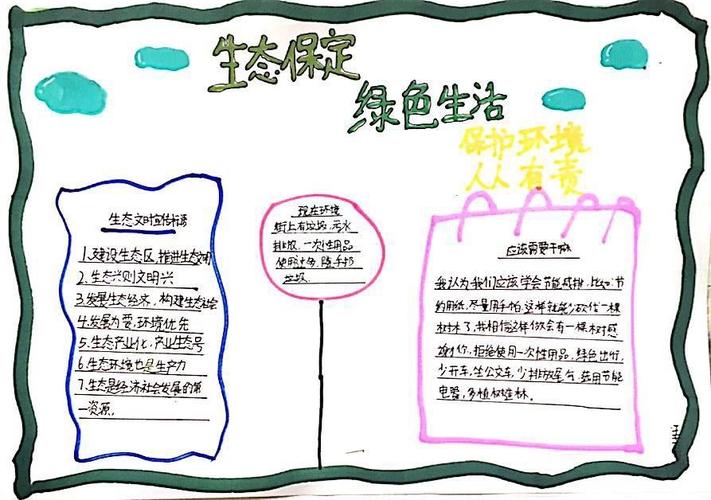 生态保定
绿色生活
保护环境
人人有责
生态文明宣传标语
1.建设生态区,推进生态文明
2.生态兴则文明兴
3.发展生态经济,构建生态社会
4.发展为要,环境优先
5.生态产业化,产业生态
6.生态环境也是生产力
7.生态是经济社会发展的第
一资源。
现在环境
街上有垃圾,污水
排放,一次性用品
使用过多,随手扔
垃圾.
应该需要干嘛
我认为我们应该学会节能减排,比如:节
约用纸,尽量用手帕,这样就能少砍伐一棵
树木了,我相信这样做会有一棵树感
谢你,拒绝使用一次性用品,绿色出行,
少开车,坐公交车,少排放尾气,使用节能
电器,多植树造林。